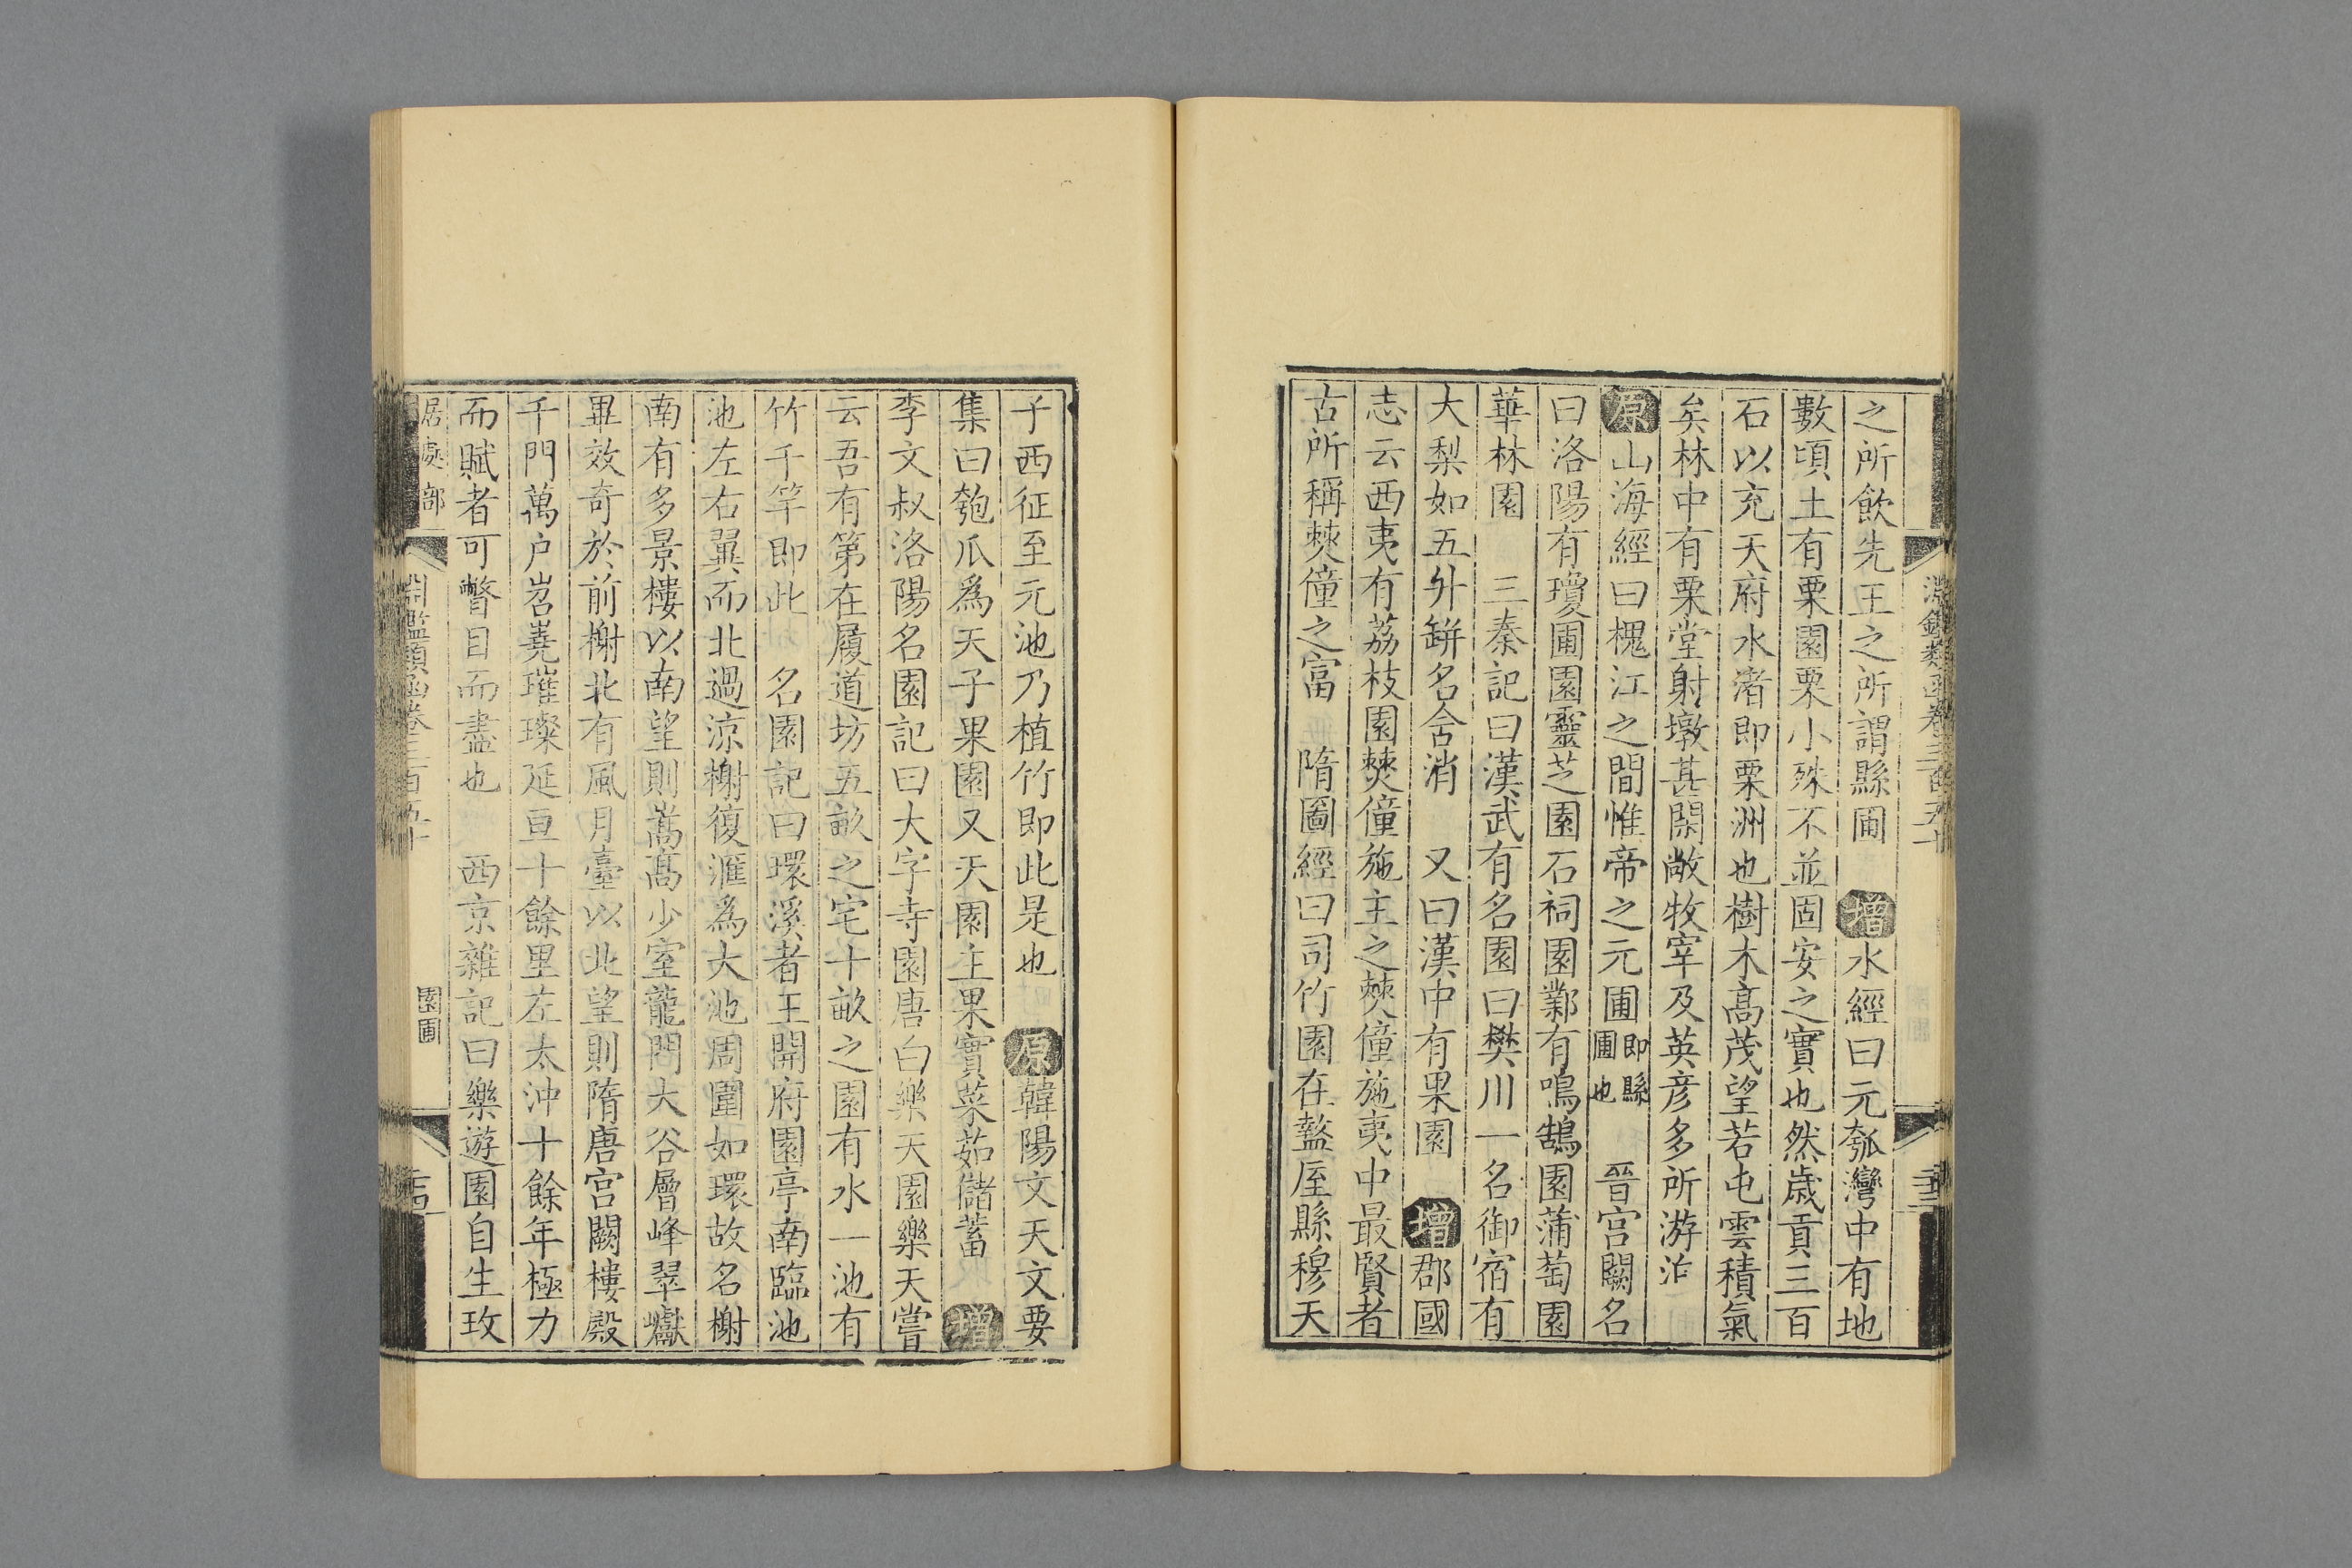 淵鑑類函卷三百五十
之所飲先王之所謂縣圃 增水經曰元瓠灣中有地
數頃土有栗園栗小殊不並固安之實也然歳貢三百
石以充天府水渚即栗洲也樹木高茂望若屯雲積氣
矣林中有栗堂射墩甚閑敞牧宰及英彦多所游泎
原山海經曰槐江之間惟帝之元圃即縣圃也 晉宫闕名
曰洛陽有瓊圃園靈芝園石祠園鄴有鳴鵠園蒲萄園
華林園 三秦記曰漢武有名園曰樊川一名御宿有
大梨如五升缾名含消 又曰漢中有果園 增郡國
志云西夷有荔枝園僰僮施主之僰僮施夷中最賢者
古所稱僰僮之富 隋圖經曰司竹園在盩厔縣穆天
子西征至元池乃植竹即此是也 原韓陽文天文要
集曰匏瓜爲天子果園又天園主果實菜茹儲蓄 增
李文叔洛陽名園記曰大字寺園唐白樂天園樂天嘗
云吾有第在履道坊五畝之宅十畝之園有水一池有
竹千竿即此 名園記曰環溪者王開府園亭南臨池
池左右翼而北過涼榭復滙爲大池周圍如環故名榭
南有多景樓以南望則嵩高少室龍門大谷層峰翠巘
畢效奇於前榭北有風月臺以北望則隋唐宫闕樓殿
千門萬户岧嶤璀璨延亘十餘里左太沖十餘年極力
而賦者可瞥目而盡也 西京雜記曰樂遊園自生玫
居處部 淵鑑類函卷三百五十 園圃